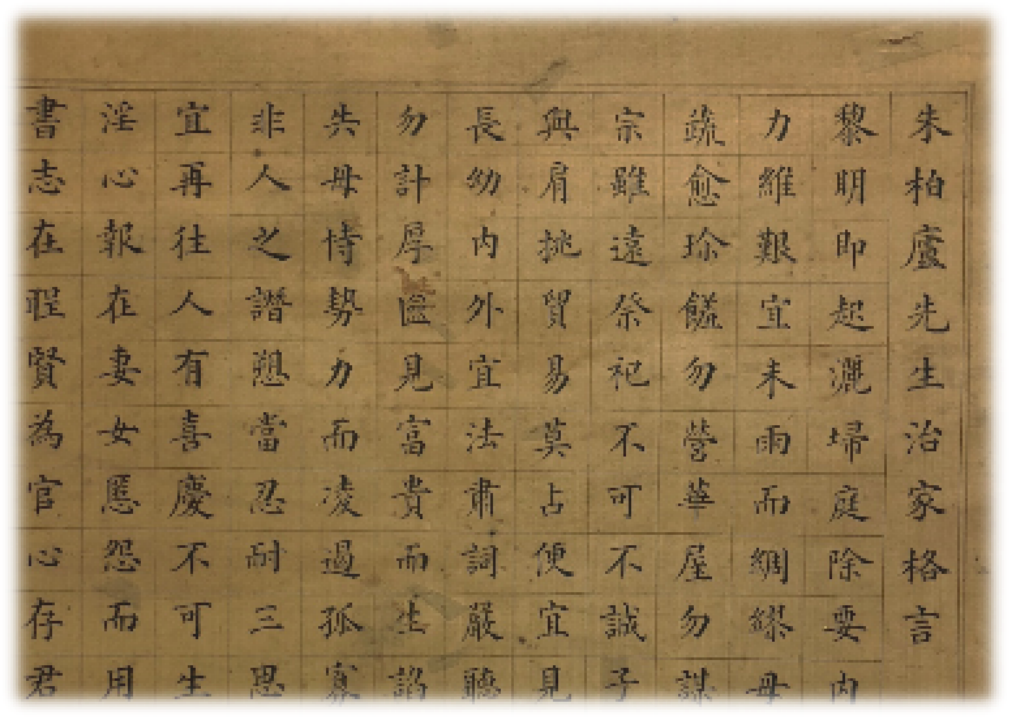 朱柏廬先生治家格言
黎明即起灑埽庭除要内
力維艱宜未雨而綢繆毋
蔬愈珍饈勿營華屋勿謀
宗雖遠祭祀不可不誠子
與肩挑貿易莫占便宜見
長幼内外宜法肅詞嚴聽
勿計厚匳見富貴而生諂
失毋恃勢力而凌逼孤寡
非人之譖愬當忍耐三思
宜再往人有喜慶不可生
淫心報在妻女匿怨而用
書志在聖賢為官心存君